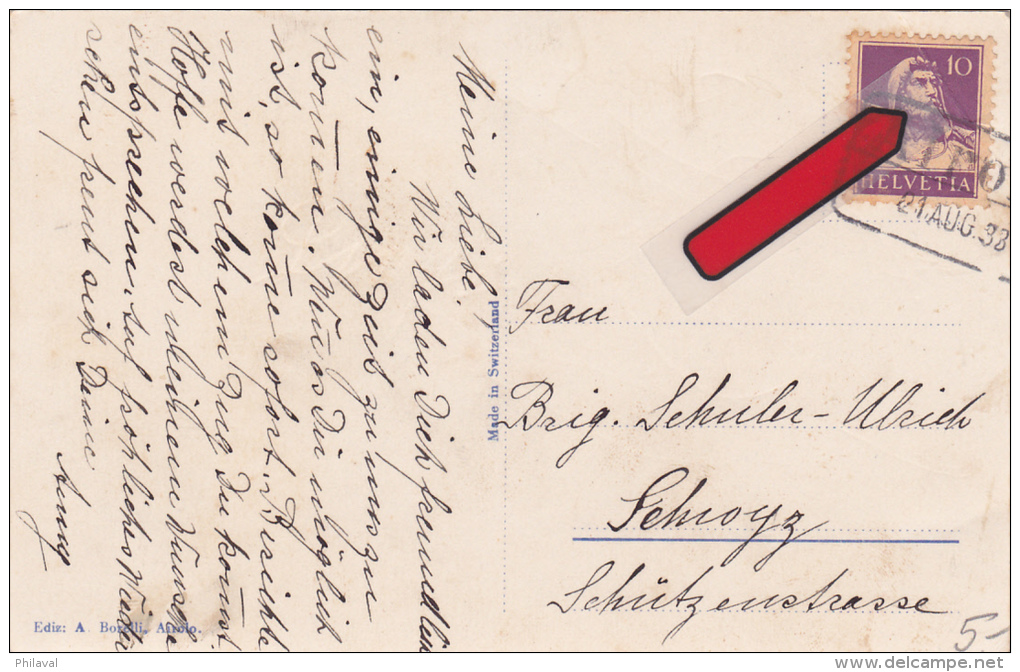 Meine Liebe!
Wir laden Dich freundlich
ein, einige Zeit zu uns zu
kom̄en. Wenn es Dir möglich
ist, so kom̄e sofort. Berichte
mit welchem Zug Du kom̄st.
Hoffe werdest meinem Wunsche
entsprechen. Auf fröhliches Wieder
sehen freut sich Deine
Made in Switzerland
10
HELVETIA
21.AUG.33
Frau
Brig. Schuler-Ulrich
Schwyz
Schützenstrasse
5.-
Ediz: A. Borelli, Airolo.
Philaval
delcampe.net